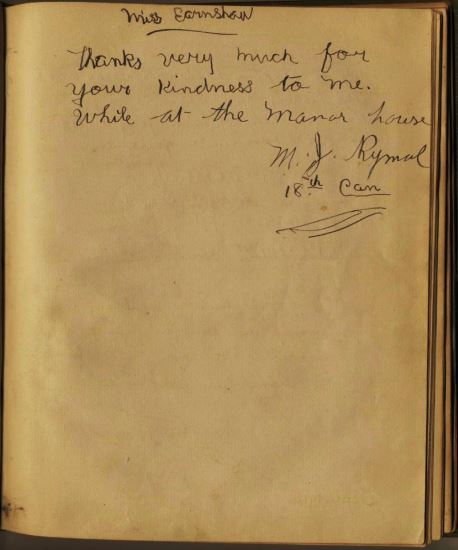 Miss Earnshaw
Thanks very much for
your kindness to me.
While at the Manor house
M. J. Rymal
18th Can